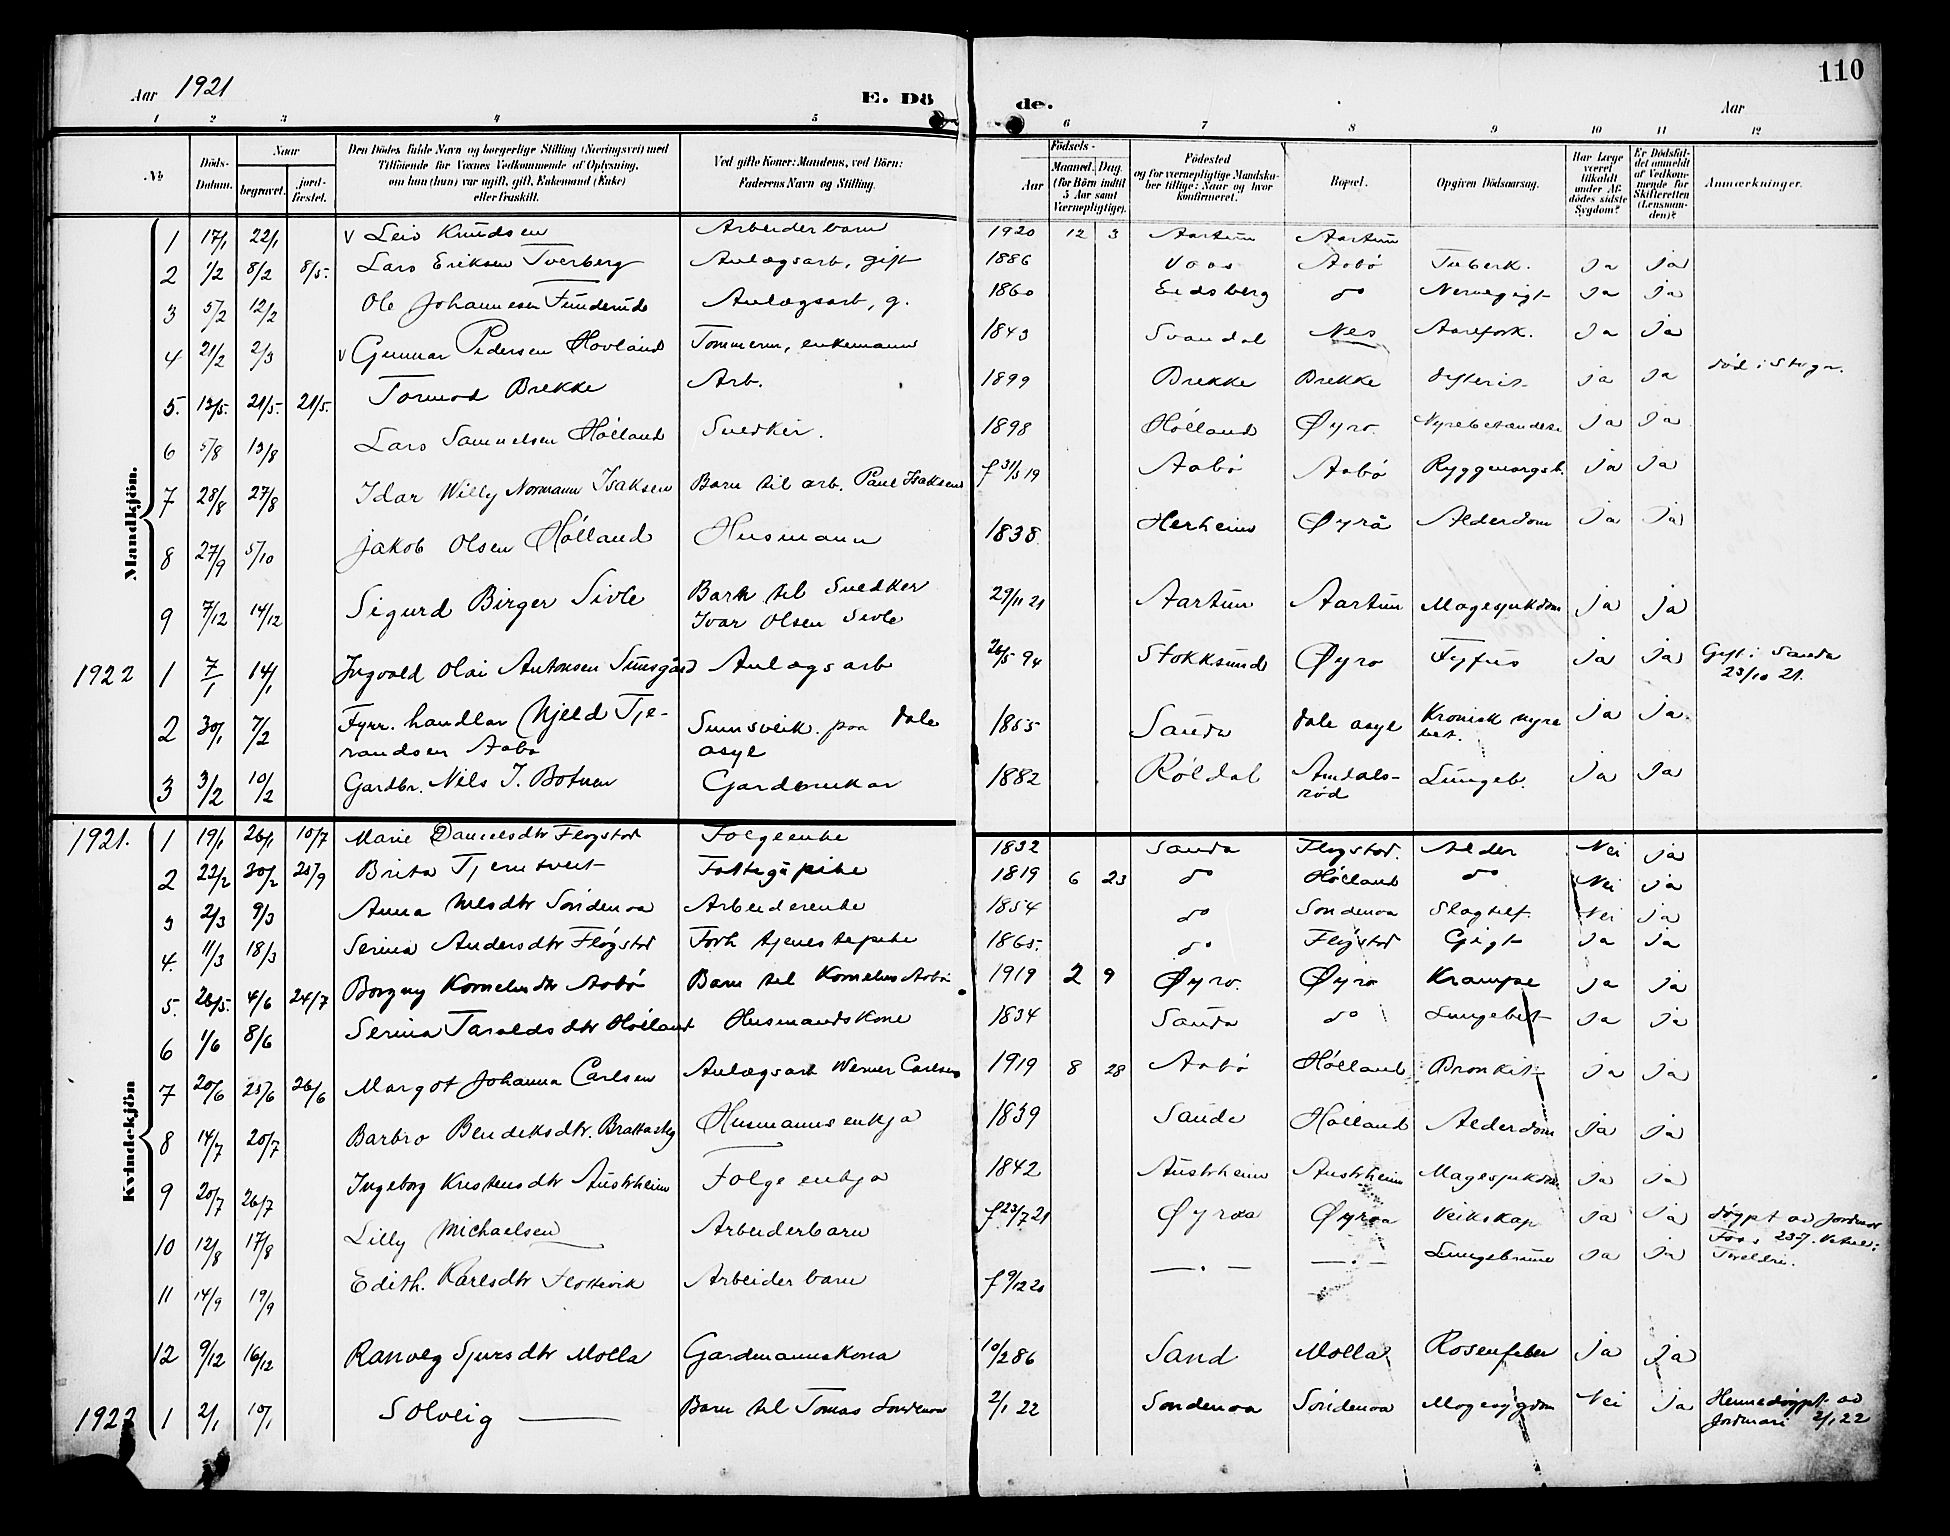 110
Aar 1921
E. Dö
de.
Aar
1 2 3 4 5 6 7 8 9 10 11 12
No
Döds-Datum.
Naar
begravet.
jord-fæstet.
Den Dödes fulde Navn og borgerlige Stilling (Næringsvei) med
Tilföiende for Voxnes Vedkommende af Oplysning,
om han (hun) var ugift, gift, Enkemand (Enke)
eller fraskilt.
Ved gifte Koner: Mandens, ved Börn:
Faderens Navn og Stilling.
Födsels-
Aar
Maaned. Dag.
(for Börn indtil
5 Aar samt
Værnepligtige).
Födested
og for værnepligtige Mandska-
ber tillige: Naar og hvor
konfirmeret.
Bopæl.
Opgiven Dödsaarsag.
Har Læge
været
tilkaldt
under Af-
dödes sidste
Sygdom?
Er Dödsfal-
det anmeldt
af Vedkom-
mende for
Skifteretten
(Lensman-
den)?
Anmærkninger.
Mandkjön.
1 17/1 22/1 v Leiv Knudsen Arbeiderbarn 1920 12 3 Aartun Aartun
2 1/2 8/2 8/5. Lars Eriksen Tverberg Anlægsarb, gift 1886 Voss Aabö Tuberk. Ja Ja
3 5/2 12/2 Ole Johannesen Funderud Anlægsarb, g. 1860 Eidsberg do Nervegigt Ja Ja
4 21/2 2/3 v Gunnar Pedersen Hovland Tömmerm, enkemann 1843 Svandal Nes Aarefork. Ja Ja
5. 13/5. 21/5. 21/5. Tormod Brekke Arb. 1899 Brekke Brekke Difterit Ja Ja död i Stugn.
6 5/8 13/8 Lars Samuelsen Hölland Snedker. 1898 Hölland Øyro Nyrebetændelse Ja Ja
7 23/8 27/8 Idar Willy Normann Isaksen Barn til arb. Paul Isaksen f 31/3 19 Aabö Aabö Ryggmargsb. Ja Ja
8 27/9 5/10 Jakob Olsen Hölland Husmann 1838 Herheim Øyrå Alderdom Ja Ja
9 7/12 14/12 Sigurd Birger Sivle Barn til Snedker
Ivar Olsen Sivle 29/11 21 Aartun Aartun Magesjukdom Ja Ja
1922 1 7/1 14/1 Ingvald Olai Antonsen Sunsgård Anlægsarb 26/5 94 Stokksund Øyro Tyfus Ja Ja Gift i Sauda
23/10 21.
2 30/1 7/2 Fyrr. handlar Njeld Tje-
randsen Aabö Sinnsveik. paa Dale
asyl 1855 Sauda Dale asyl Kronisk nyre
bet. Ja Ja
3 3/2 10/2 Gardbr. Nils J. Botnen Gardbrukar 1882 Röldal Amdals-
röd Lungeb. Ja Ja
Kvindekjön
1921. 1 19/1 26/1 10/7 Marie Danielsdtr Flogstad Folgeenke 1832 Sauda Flogstad. Alder Nei Ja
2 22/2 30/2 25/9 Brita Tjemtveit Fattigpike 1819 6 23 do Hölland do Nei Ja
3 2/3 9/3 Anna Nilsdtr Söndenaa Arbeiderenke 1854 do Söndenaa Slagtilf. Nei Ja
4. 11/3 18/3 Serina Andersdtr Flögstad Forh tjenestepike 1865. do Flögstad Gigt Ja Ja
5. 26/5. 4/6 24/7 Borgny Kornelusdtr Aabö Barn til Kornelius Aabö 1919 2 9 Øyro. Øyro Krampe Ja Ja
6 1/6 8/6 Serina Taraldsdtr Hölland Husmandskone 1834 Sauda do Lungebet Ja Ja
7 20/6 25/6 26/6 Margot Johanna Carlsen Anlægsarb Werner Carlsen 1919 8 28 Aabö Hölland Bronkit Ja Ja
8 14/7 20/7 Barbro Bendiksdtr. Brattasteg Husmannsenkja 1839 Saude Hölland Alderdom Ja Ja
9 20/7 26/7 Ingeborg Kristensdtr Austrheim Folgeenkja 1842 Austrheim Austrheim Magesjukdom Ja Ja
10 12/8 17/8 Lilly Michaelsen Arbeiderbarn f 23/7 21 Øyraa Øyraa Veikskap Ja Ja döypt av Jordmor
Foss 23/7.
11 14/9 19/9 Edith. Karlsdtr Flottevik Arbeiderbarn f 9/12 20 — . — — . — Lungebrune Ja Ja
12 9/12 16/12 Ranveg Sjursdtr Molla Gardmannskona 10/2 86 Sand Molla Rosenfeber Ja Ja
1922 1 2/1 10/1 Solveig — Barn til Tomas Söndenaa 2/1 22 Söndenaa Söndenaa Magesygdom Nei Ja Hemedöypt av
Jordmori 2/1 22